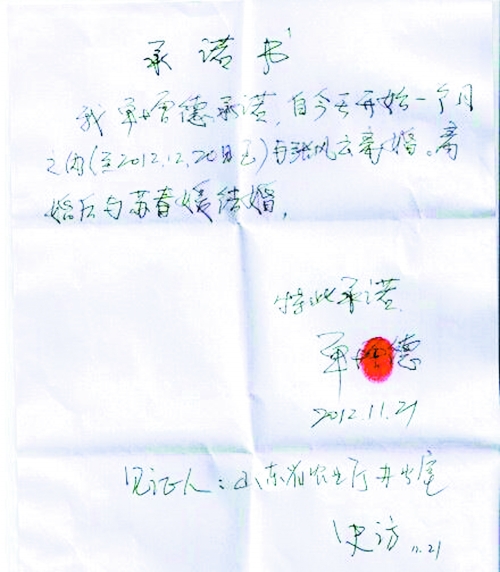 承诺书
我单增德承诺，自今天开始一个月
之内(至2012.12.20日止)与张风云离婚。离
婚后与苏春媛结婚。
特此承诺
单增德
2012.11.21
见证人：山东省农业厅办公室
史访 11.21